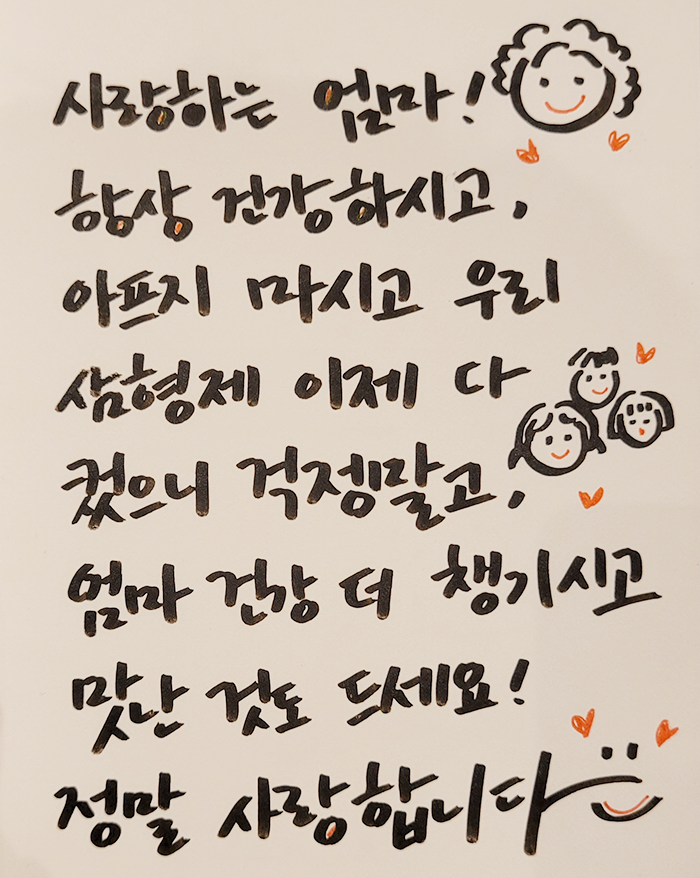 사랑하는 엄마!
항상 건강하시고,
아프지 마시고 우리
삼형제 이제 다
컸으니 걱정말고,
엄마 건강 더 챙기시고
맛난 것도 드세요!
정말 사랑합니다